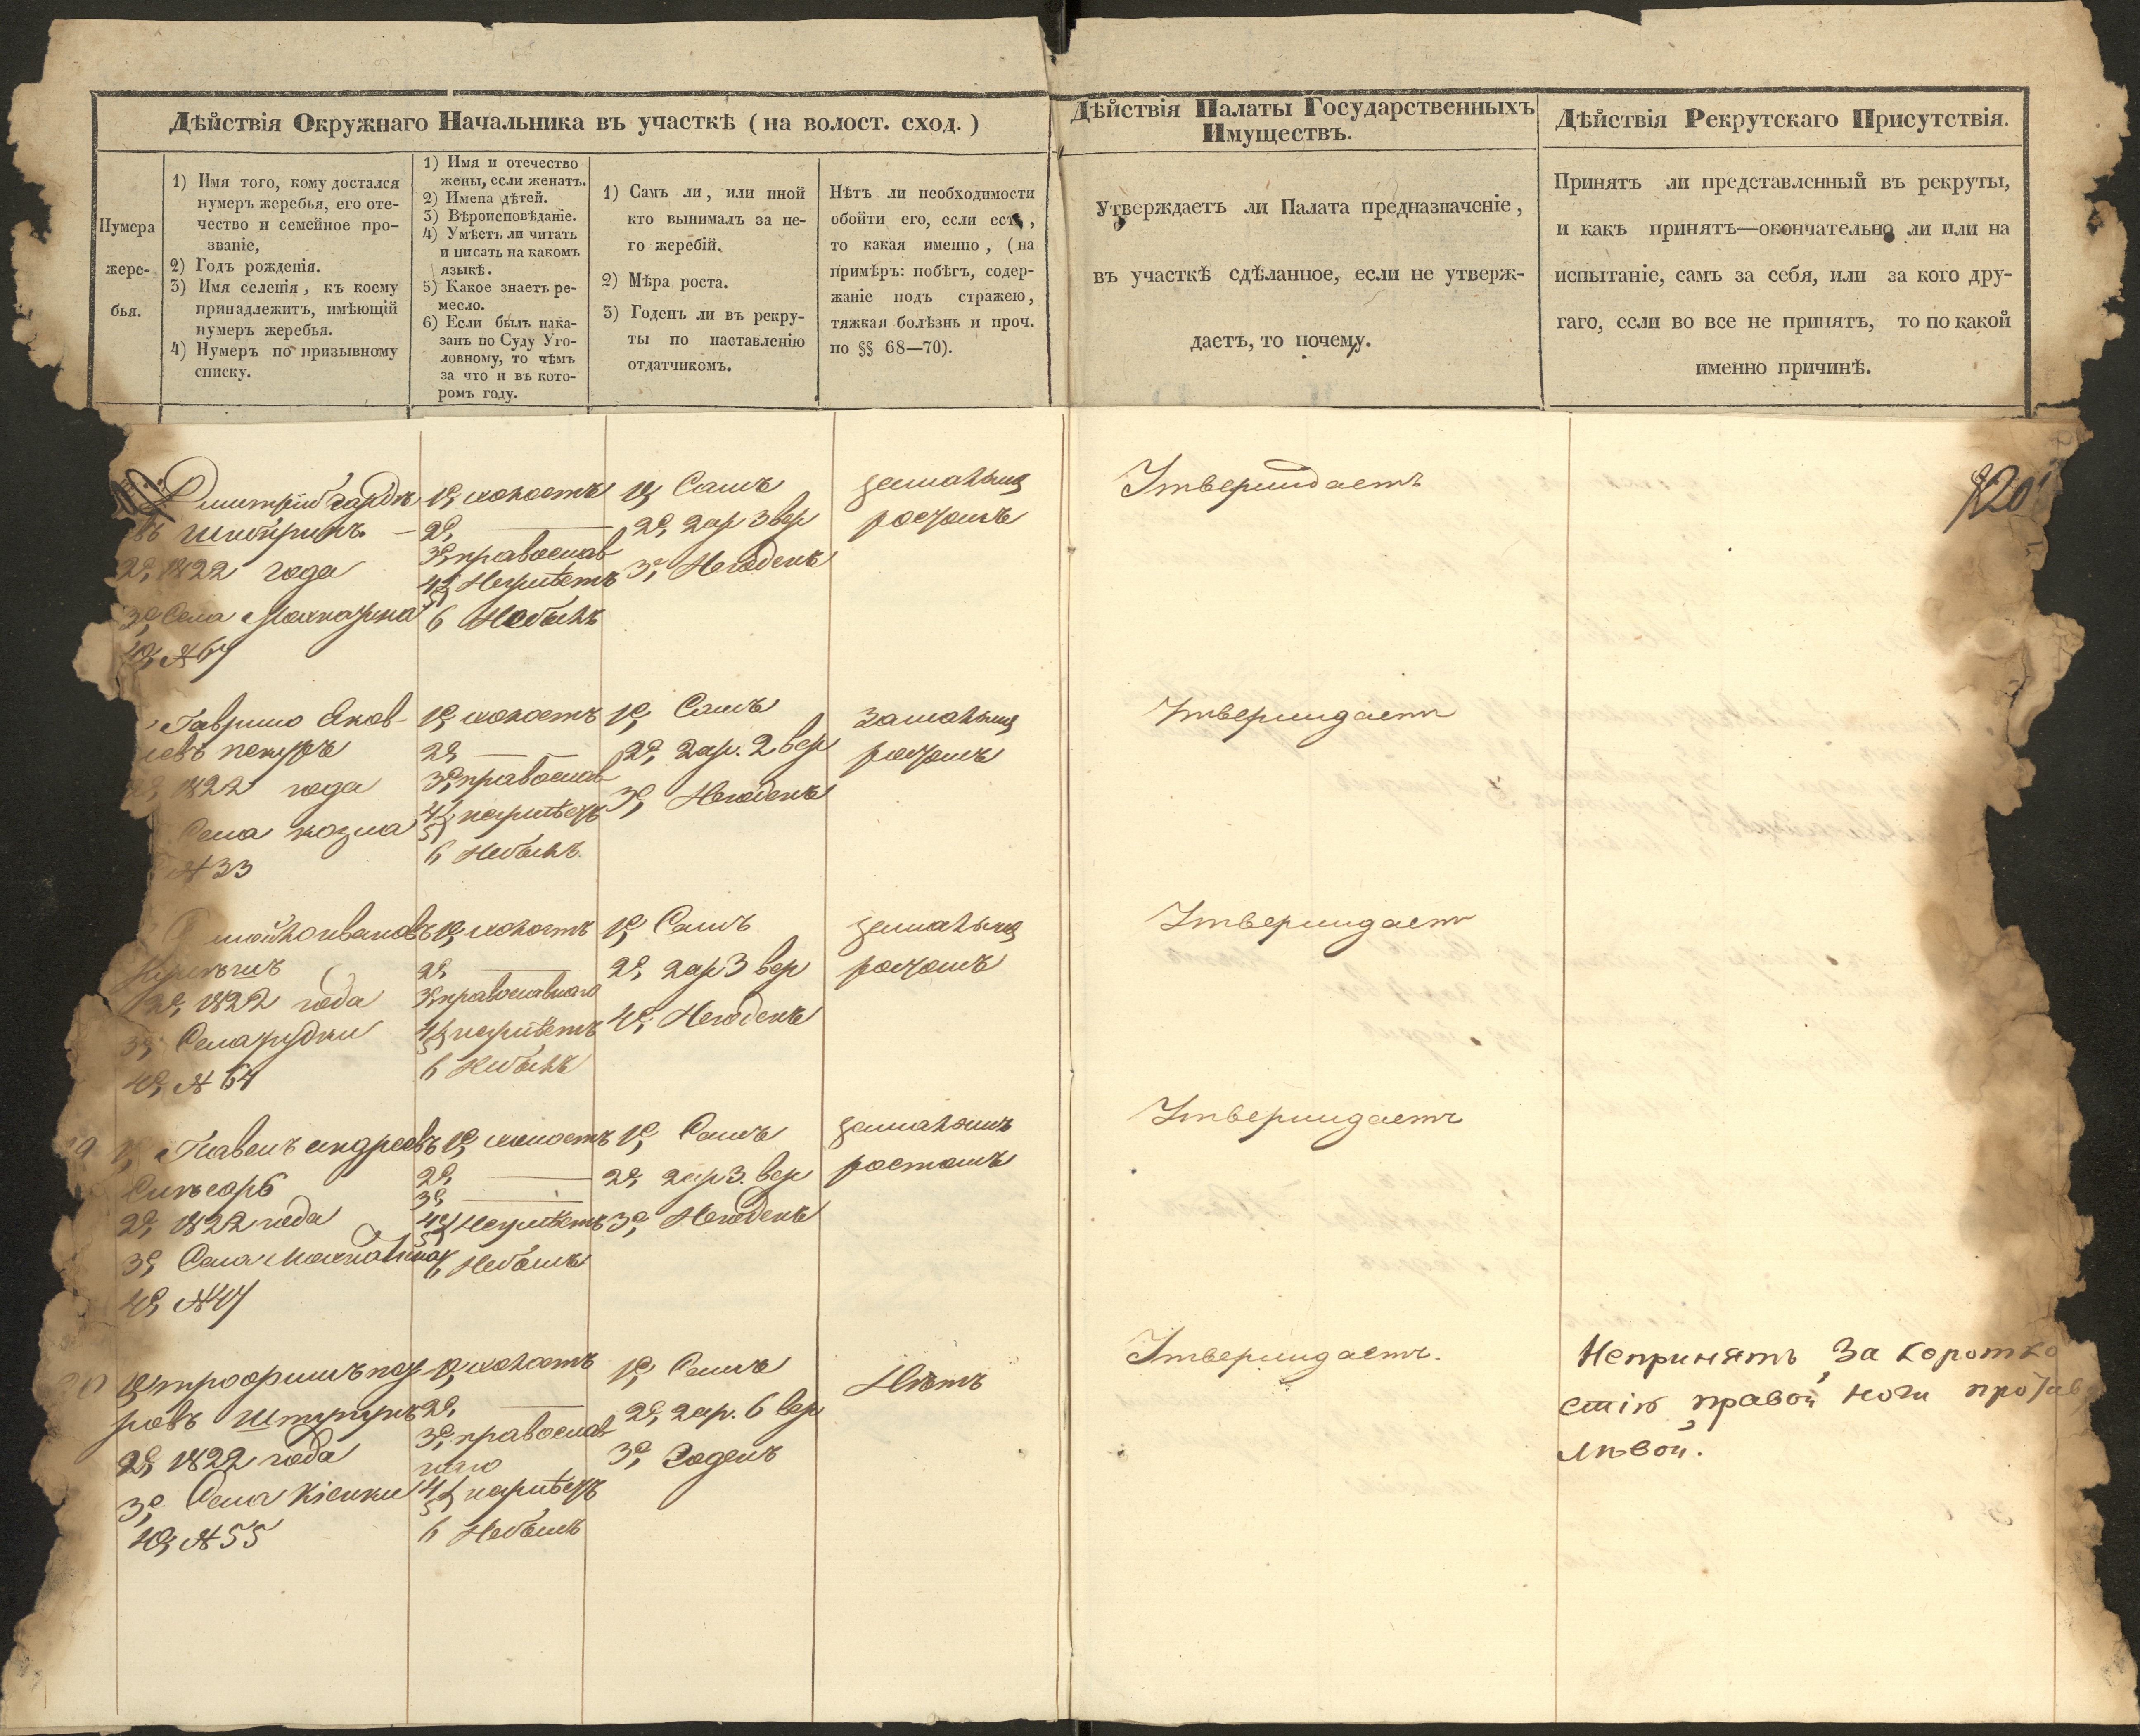 Дѣйствія Окружнаго Начальника въ участкѣ (на волост. сход.)
Нумера
жере-
бья.
1) Имя того, кому достался
нумеръ жеребья, его оте-
чество и семейное про-
званіе,
2) Годъ рожденія.
3) Имя селенія, къ коему
принадлежитъ, имѣющій
нумеръ жеребья.
4) Нумеръ по призывному
списку.
1) Имя и отечество
жены, если женатъ.
2) Имена дѣтей.
3) Вѣроисповѣданіе.
4) Умѣетъ ли читать
и писать на какомъ
языкѣ.
5) Какое знаетъ ре-
месло.
6) Если былъ нака-
занъ по Суду Уго-
ловному, то чѣмъ
за что и въ кото-
ромъ году.
1) Самъ ли, или иной
кто вынималъ за не-
го жеребій.
2) Мѣра роста.
3) Годенъ ли въ рекру-
ты по наставленію
отдатчикомъ.
Нѣтъ ли необходимости
обойти его, если есть,
то какая именно, (на
примѣръ: побѣгъ, содер-
жаніе подъ стражею,
тяжкая болѣзнь и проч.
по §§ 68—70).
Дѣйствія Палаты Государственныхъ
Имуществъ.
Утверждаетъ ли Палата предназначеніе,
въ участкѣ сдѣланное, если не утверж-
даетъ, то почему.
Дѣйствія Рекрутскаго Присутствія.
Принятъ ли представленный въ рекруты,
и какъ принятъ—окончательно ли или на
испытаніе, самъ за себя, или за кого дру-
гаго, если во все не принятъ, то по какой
именно причинѣ.
120
Дмитрій
2е, 1822 года
3е, Села
4е, № 67
1е, холостъ
2е, —
3е, православ
4 5 Неумѣетъ
6 Небылъ
1е, Самъ
2е, 2 ар 3 вер
3е, Негоденъ
замалымъ
ростомъ
Утверждаетъ
Гаврило Яков-
левъ
2е, 1822 года
Села
№ 33
1е, холостъ
2е, —
3е, православ
4 5 неумѣетъ
6 Небылъ
1е, Самъ
2е, 2 ар. 2 вер
3е, Негоденъ
замалымъ
ростомъ
Утверждаетъ
Ивановъ
2е, 1822 года
3е, Села Рудки
4е, № 64
1е, холостъ
2е, —
3е, православнаго
4 5 неумѣетъ
6 Небылъ
1е, Самъ
2е, 2 ар 3 вер
4е, Негоденъ
замалымъ
ростомъ
Утверждаетъ
1е, Павелъ Андреевъ
2е, 1822 года
3е, Села
4е, № 47
1е, холостъ
2е, —
3е, —
4 5 Неумѣетъ
6 Небылъ
1е, Самъ
2е, 2 ар 3. вер
3е, Негоденъ
замалымъ
ростомъ
Утверждаетъ
20
1е, Трофимъ
2е, 1822 года
3е, Села Кіенки
4е, № 55
1е, холостъ
2е, —
3е, православ
наго
4 5 неумѣетъ
6 Небылъ
1е, Самъ
2е, 2 ар. 6 вер
3е, Годенъ
Нѣтъ
Утверждаетъ.
Непринятъ за коротко
стію правой ноги против
лѣвой.